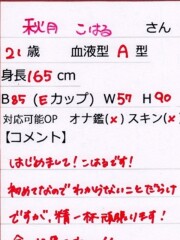 秋月 こはる さん
21歳 血液型 A 型
身長165cm
B85 (Eカップ) W57 H90
対応可能OP オナ鑑(×) スキン(×)
【コメント】
はじめまして!こはるです!
初めてなのでわからないことだらけ
ですが、精一杯頑張ります!